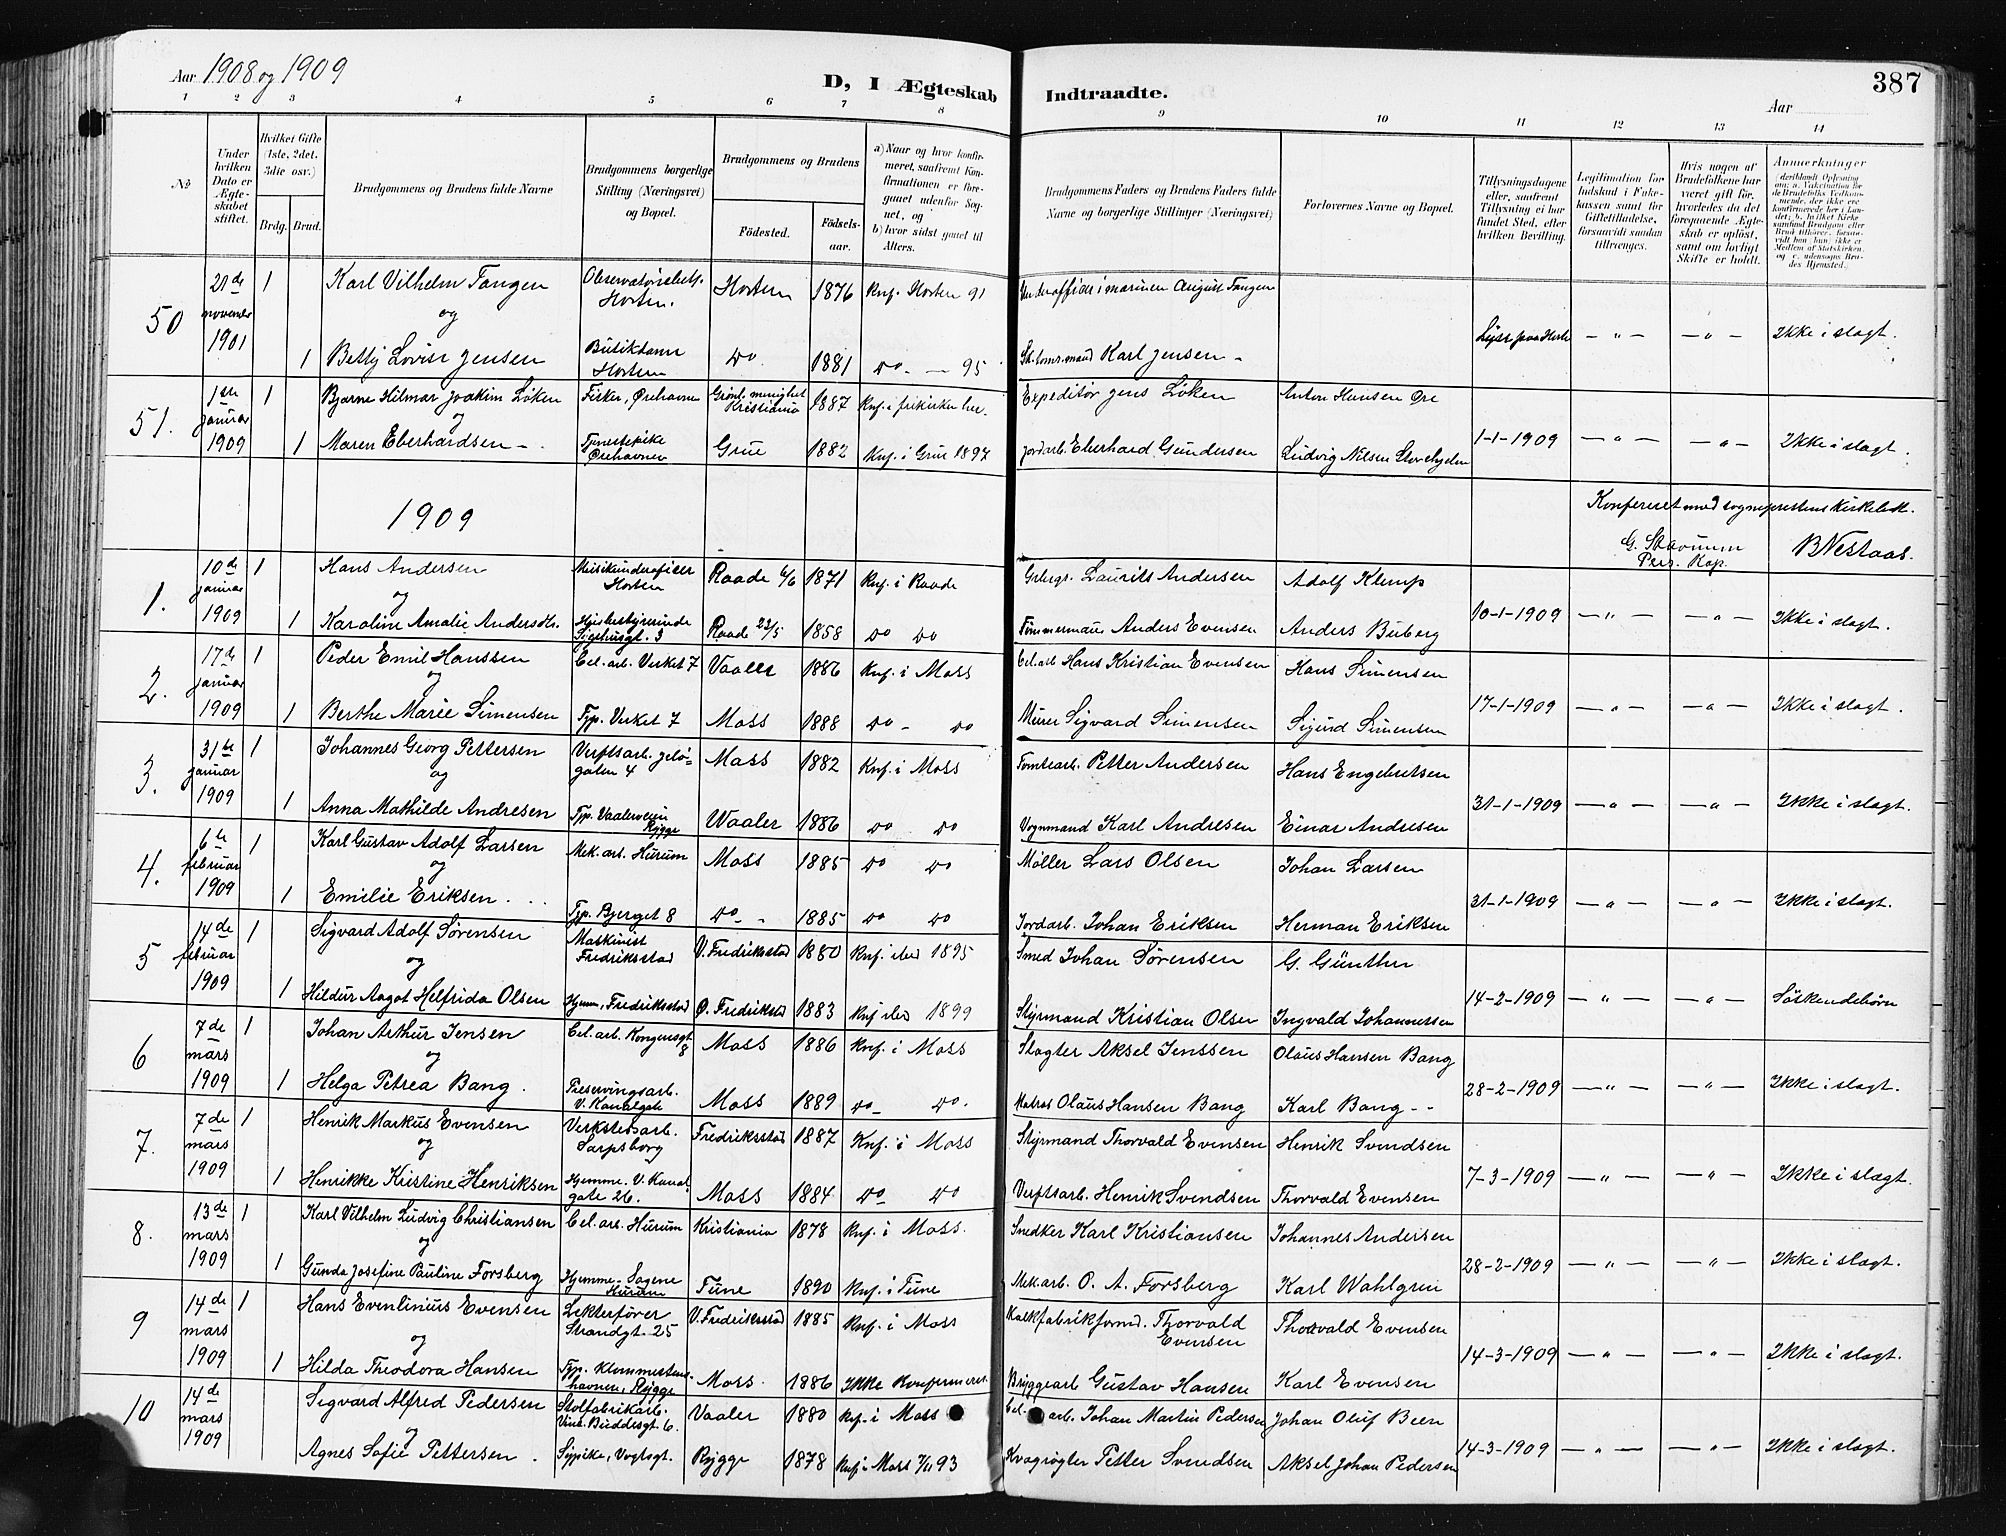 Aar 1908 og 1909
D, I Ægteskab Indtraadte.
387
Aar
1 2 3 4 5 6 7 8 9 10 11 12 13 14
No
Under hvilken Dato er Ægteskabet stiftet.
Hvilket Gifte (1ste, 2det, 3die osv.)
Brdg. Brud.
Brudgommens og Brudens fulde Navne
Brudgommens borgerlige Stilling (Næringsvei) og Bopæl.
Brudgommens og Brudens
Fødested. Fødselsaar.
a) Naar og hvor konfirmeret, saafremt Konfirmationen er foregaaet udenfor Sognet, og
b) hvor sidst gaaet til Alters.
Brudgommens Faders og Brudens Faders fulde Navne og borgerlige Stillinger (Næringsvei)
Forlovernes Navne og Bopæl.
Tillysningsdagene eller, saafremt Tillysning ei har fundet Sted, efter hvilken Bevilling.
Legitimation for Indskud i Enkekassen samt for Giftetilladelse, forsaavidt saadan tiltrænges.
Hvis nogen af Brudefolkene har været gift før, hvorledes da det foregaaende Ægteskab er opløst, samt om lovligt Skifte er holdt.
Anmerkninger
50 21de november 1901 1 Karl Vilhelm Tangen Horten 1876 Knf. Horten 91 Underofficer i marinen August Tangen
og
1 Betty Lovise Jensen Horten Do 1881 Do - 95 Karl Jensen - " - - " - Ikke i slagt.
51. 1ste januar 1909 1 Bjarne Hilmar Joakim Løken Fisker, Ørehavnen Kristiania 1887 Knf. i frikirken her. Expeditør Jens Løken Anton Hansen Øre
og
1 Maren Eberhardsen Tjenestepike Ørehavnen Grue 1882 Knf. i Grue 1897 Jordarb. Eberhard Gundersen Ludvig Nilsen 1-1-1909 - " - - " - Ikke i slagt.
1909
Konfereret med sogneprestens kirkebok.
Pers. Kap.
1. 10de januar 1909 1 Hans Andersen Musikunderofficer Horten Raade 6/6 1871 Knf. i Raade Grbrgs. Laurits Andersen Adolf Klemp
og
1 Karoline Amalie Andersdtr. 3 Raade 23/5 1858 Do Do Tømmermand Anders Evensen Anders Buberg 10-1-1909 - " - - " - Ikke i slagt.
2. 17de januar 1909 1 Peder Emil Hanssen Cel. arb. Verket 7 Vaaler 1886 Knf. i Moss Cel. arb Hans Kristian Evensen Hans Simensen
og
1 Berthe Marie Simensen Typ. Verket 7 Moss 1888 Do - Do Murer Sigvard Simensen Sigurd Simensen 17-1-1909 - " - - " - Ikke i slagt.
3. 31te januar 1909 1 Johannes Georg Pettersen Verftsarb. Jeløgaten 4 Moss 1882 Knf. i Moss Tomtearb. Petter Andersen Hans Engebretsen
og
1 Anna Mathilde Andresen Typ. Vaalerveien Rygge Waaler 1886 Do Do Vognmand Karl Andresen Einar Andresen 31-1-1909 - " - - " - Ikke i slagt.
4. 6te februar 1909 1 Karl Gustav Adolf Larsen Mek. arb. Hurum Moss 1885 Do Do Møller Lars Olsen Johan Larsen
og
1 Emilie Eriksen Typ. Bjerget 8 Do - 1885 Do Do Jordarb. Johan Eriksen Herman Eriksen 31-1-1909 - " - - " - Ikke i slagt.
5 14de februar 1909 1 Sigvard Adolf Sørensen Maskinist Fredriksstad V. Fredriksstad 1880 Knf. ibd 1895 Smed Johan Sørensen G. Günther
og
1 Hildur Aagot Helfrida Olsen Hjem, Fredriksstad Ø. Fredriksstad 1883 Knf ibd 1899 Styrmand Kristian Olsen Ingvald Johannessen 14-2-1909 - " - - " - Søskendebørn
6 7de mars 1909 1 Johan Arthur Jensen Cel. arb. Kongensgt 8 Moss 1886 Knf. i Moss Slagter Aksel Jenssen Olaus Hansen Bang
og
1 Helga Petrea Bang. Preservingsarb. V. Kanalgate Moss 1889 Do - Do. Matros Olaus Hansen Bang Karl Bang -- 28-2-1909 - " - - " - Ikke i slagt.
7. 7de mars 1909 1 Henrik Markus Evensen Verkstedsarb. Sarpsborg Fredriksstad 1887 Knf. i Moss Styrmand Thorvald Evensen Henrik Svendsen
og
1 Henrikke Kristine Henriksen Hjemme. V. Kanalgate 26. Moss 1884 Do Do Verftsarb. Henrik Svendsen Thorvald Evensen 7-3-1909 - " - - " - Ikke i slagt.
8. 13de mars 1909 1 Karl Vilhelm Ludvig Christiansen Cel. arb. Hurum Kristiania 1878 Knf. i Moss. Snedker Karl Kristiansen Johannes Andersen
og
1 Gunda Josefine Pauline Forsberg Hjemme - Sagene Hurum Tune 1890 Knf. i Tune Mek. arb. O. A. Forsberg Karl Wahlgren 28-2-1909 - " - - " - Ikke i slagt.
9 14de mars 1909 1 Hans Evenlinius Evensen Lekterfører Strandgt. 25 V. Fredriksstad 1885 Knf. i Moss Kalkfabrikformd. Thorvald Evensen Thorvald Evensen
og
1 Hilda Theodora Hansen Typ. Rygge Moss. 1886 Ikke konfirmeret. Bryggearb Gustav Hansen Karl Evensen 14-3-1909 - " - - " - Ikke i slagt.
10 14de mars 1909 Sigvard Alfred Pedersen Stolfabrikarb. Vinc. Buddesgt. 6. Vaaler 1880 Knf. i Moss Cel. arb. Johan Martin Pedersen Johan Oluf Been
og
Agnes Sofie Pettersen. Sypike, Vogtsgt. Rygge 1878 Knf i Moss 93 Petter Svendsen Aksel Johan Pedersen 14-3-1909 - " - - " - Ikke i slagt.